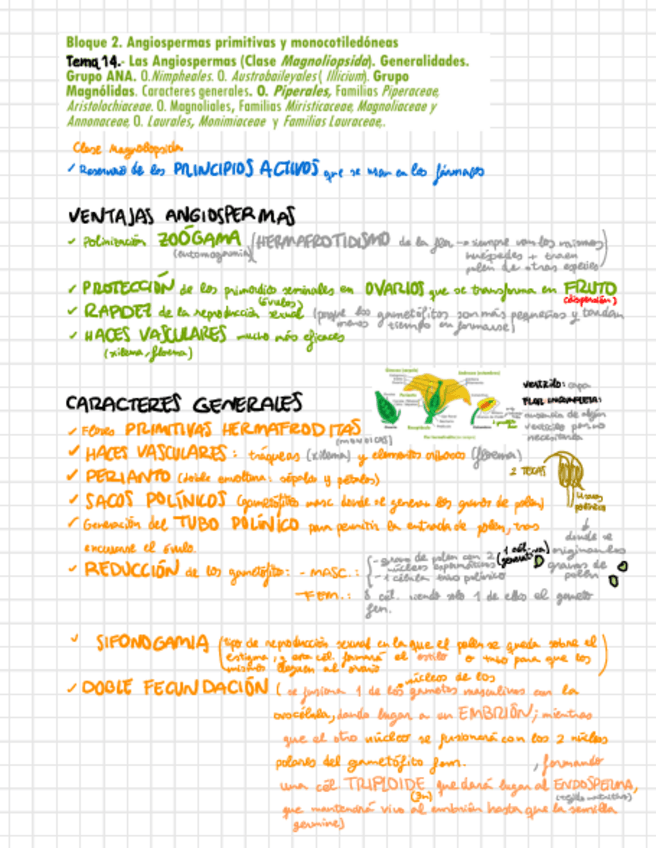 Bloque 2. Angiospermas primitivas y monocotiledóneas
Tema 14.- Las Angiospermas (Clase Magnoliopsida). Generalidades.
Grupo ANA. O. Nimpheales. O. Austrobaileyales ( Illicium). Grupo
Magnólidas. Caracteres generales. O. Piperales, Familias Piperaceae,
Aristolochiaceae. O. Magnoliales, Familias Miristicaceae, Magnoliaceae y
Annonaceae, O. Laurales, Monimiaceae y Familias Lauraceae,.
Clase Magnoliopsida
✓ Reservorio de los PRINCIPIOS ACTIVOS que se usan en los fármacos
VENTAJAS ANGIOSPERMAS
✓ Polinización ZOÓGAMA (HERMAFRODITISMO de la flor → siempre van los mismos
(entomogamia) huéspedes + traen
polen de otras especies)
✓ PROTECCIÓN de los primordios seminales en OVARIOS que se transforma en FRUTO
(óvulos) (dispersión)
✓ RAPIDEZ de la reproducción sexual (porque los gametofitos son más pequeños y tardan
menos tiempo en formarse)
✓ HACES VASCULARES mucho más eficaces
(xilema, floema)
CARACTERES GENERALES
verticilo: capa
FLOR INCOMPLETA:
ausencia de algún
verticilo por no
necesitarla
✓ Flores PRIMITIVAS HERMAFRODITAS
(monoicas)
✓ HACES VASCULARES: tráqueas (xilema) y elementos cribosos (floema)
✓ PERIANTO (doble envoltura: sépalos y pétalos)
2 TECAS
✓ SACOS POLÍNICOS (gametofito masc. donde se generan los granos de polen)
✓ Generación del TUBO POLÍNICO para permitir la entrada de polen, tras
el óvulo.
donde se
originan los
granos de
polen
✓ REDUCCIÓN de los gametofito: - MASC.: - grano de polen con 2 núcleos espermáticos (1 cél. generativa)
- 1 célula tubo polínico
- FEM.: 8 cél. siendo solo 1 de ellas el gameto
fem.
✓ SIFONOGAMIA (tipo de reproducción sexual en la que el polen se queda sobre el
estigma, y esta cél. formará el estilo o tubo para que los
mismos lleguen al ovario
✓ DOBLE FECUNDACIÓN (se fusiona 1 de los núcleos de los gametos masculinos con la
ovocélula, dando lugar a un EMBRIÓN; mientras
que el otro núcleo se fusionará con los 2 núcleos
polares del gametofito fem., formando
una cél TRIPLOIDE que dará lugar al ENDOSPERMA,
(3n) (tejido nutritivo)
que mantendrá vivo al embrión hasta que la semilla
germine)